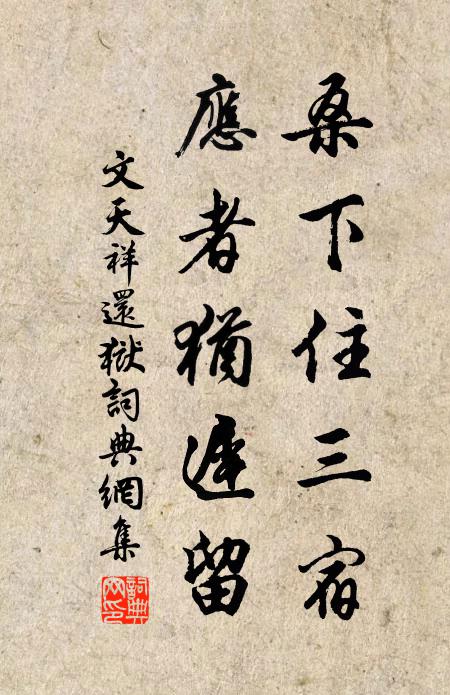 桑下住三宿
應者猶遲留
文天祥還獄詞典網集
詞典
网印